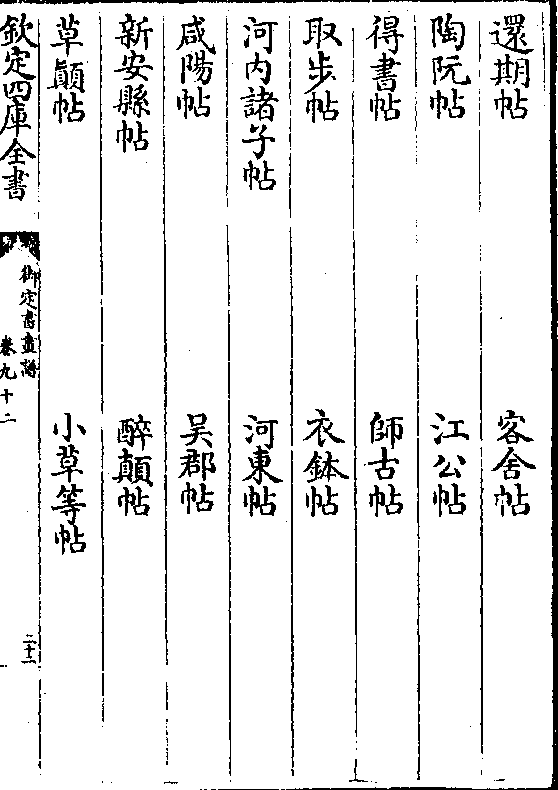 還期帖 客舍帖
陶阮帖 江公帖
得書帖 師古帖
取步帖 衣鉢帖
河内諸子帖 河東帖
咸陽帖 吴郡帖
新安縣帖 醉顛帖
草顛帖 小草等帖
欽定四庫全書 御定書畫譜 卷九十二 二十一